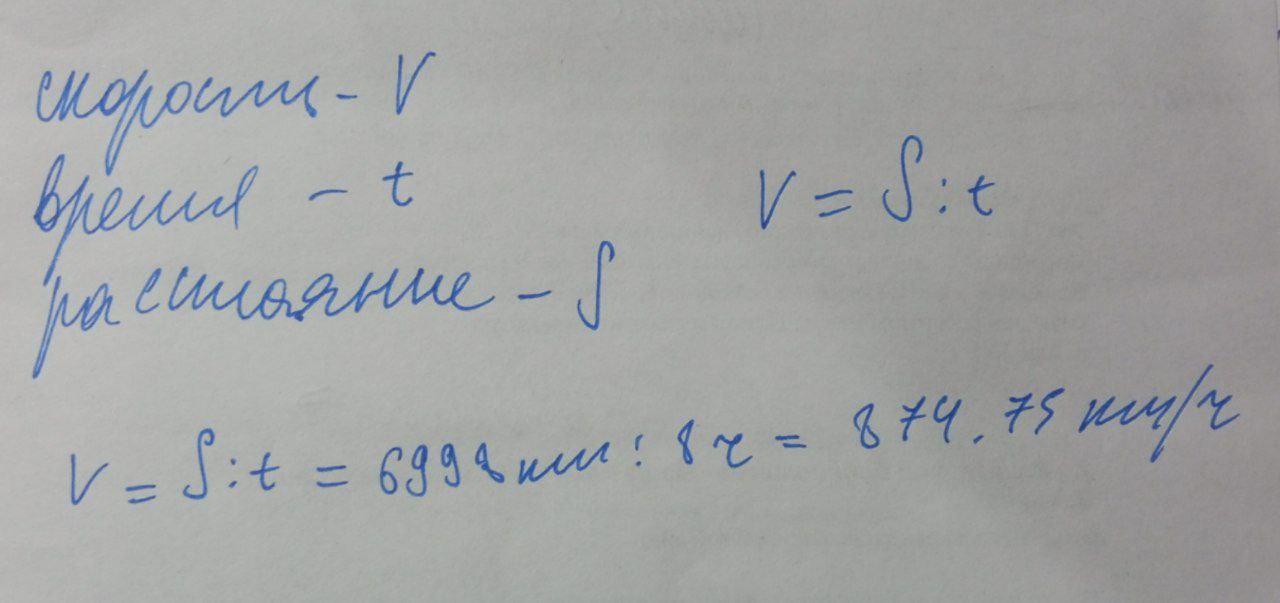 скорость - V
время - t
расстояние - S
V = S : t
V = S : t = 6998 км : 8 ч = 874.75 км/ч